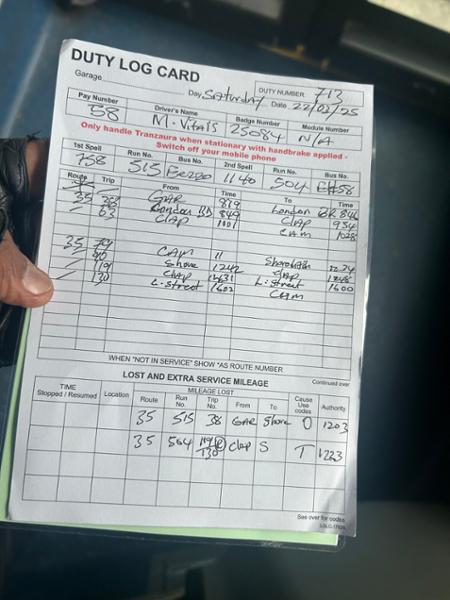 DUTY LOG CARD
Garage
Day Saturday
DUTY NUMBER 713
Date 22/02/25
Pay Number Driver's Name Badge Number Module Number
58 M. Vitals 25084 N/A
Only handle Tranzaura when stationary with handbrake applied -
Switch off your mobile phone
1st Spell Run No. Bus No. 2nd Spell Run No. Bus No.
758 515 1140 504 58
Route Trip From Time To Time
35 GAR 819 London BR 846
London BD 849 CLAP 954
63 CLAP 1001 CAM 1028
35 79 CAM 11 Shoreditch
90 Shore 1242 CLAP
119 CLAP L. Street 1600
130 L. Street 1602 CAM
WHEN "NOT IN SERVICE" SHOW *AS ROUTE NUMBER
Continued over
LOST AND EXTRA SERVICE MILEAGE
TIME Stopped / Resumed Location MILEAGE LOST Cause Use codes Authority
Route Run No. Trip No. From To
35 515 38 GAR Shore O 1203
35 504 119 130 Clap S T 1223
See over for codes